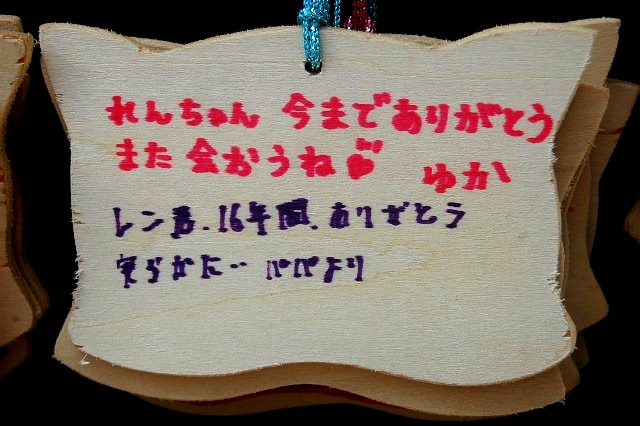 れんちゃん 今までありがとう
また会おうね♥ ゆか
レン君、16年間、ありがとう
安らかに‥ パパより